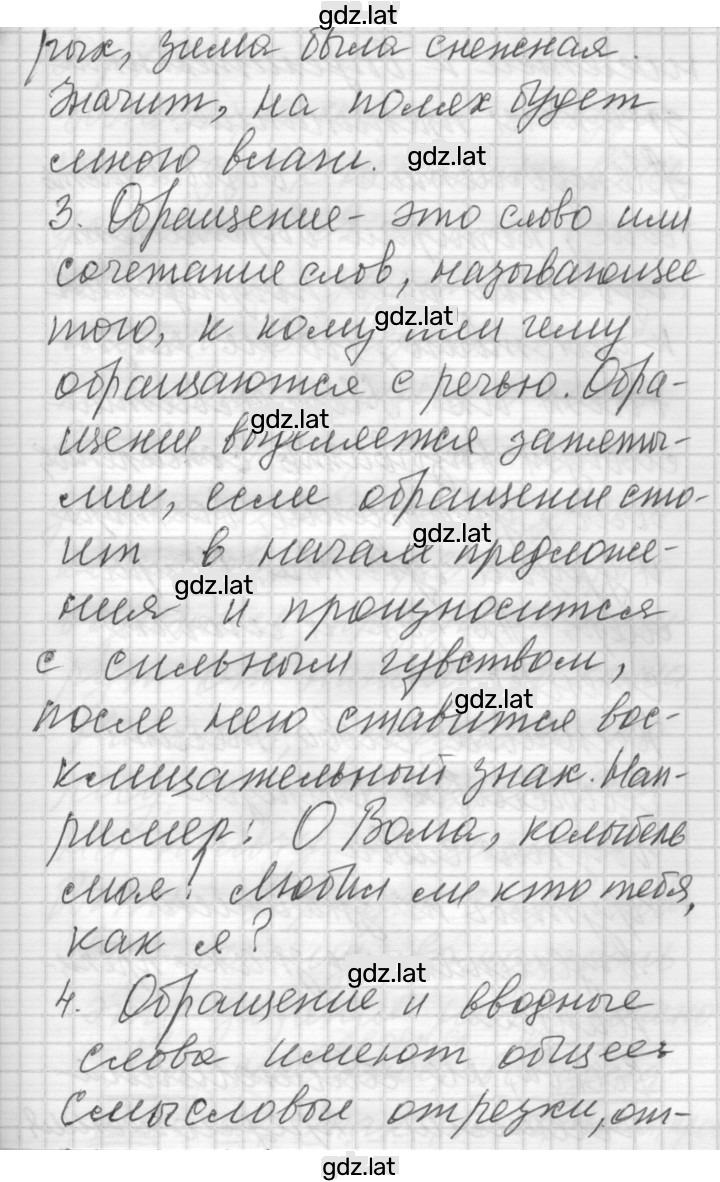 gdz.lat
рых, зима была снежная.
Значит, на полях будет
много влаги. gdz.lat
3. Обращение - это слово или
сочетание слов, называющее
gdz.lat
того, к кому или чему
обращаются с речью. Обра-
gdz.lat
щение выделяется запяты-
ми, если обращение сто-
gdz.lat
ит в начале предложе-
gdz.lat
ния и произносится
с сильным чувством,
gdz.lat
после него ставится вос-
клицательный знак. Нап-
ример: О Волга, колыбель
моя! Любил ли кто тебя,
как я?
gdz.lat
4. Обращение и вводные
слова имеют общее:
смысловые отрезки, от-
gdz.lat